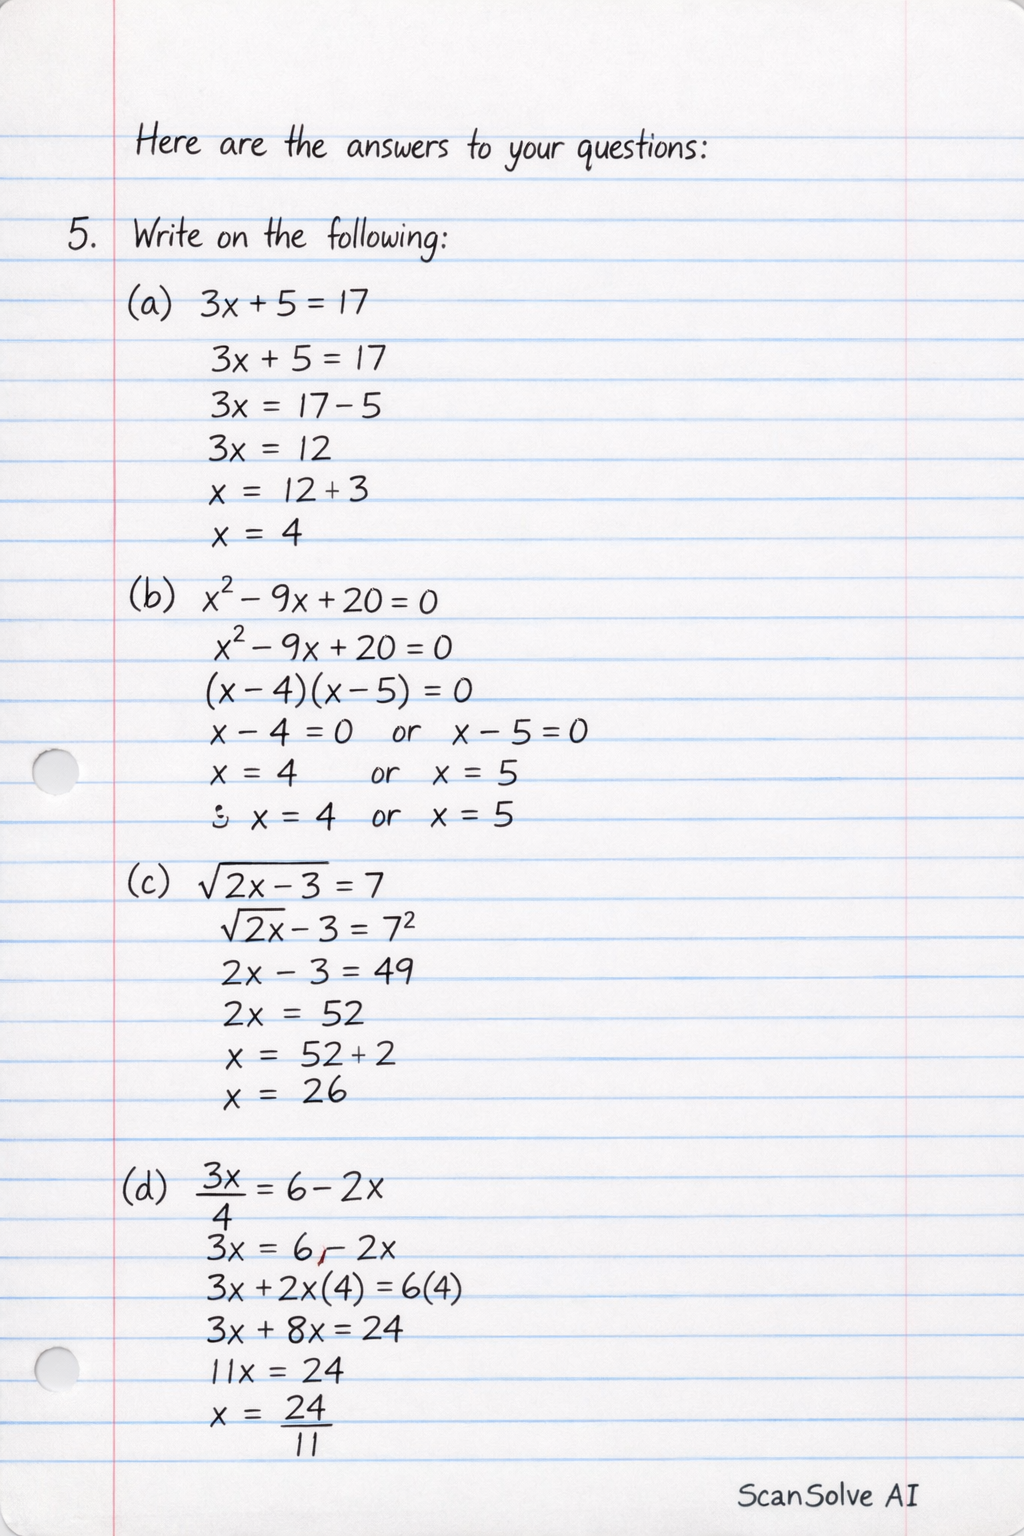 Here are the answers to your questions:
5. Write on the following:
(a) 3x + 5 = 17
3x + 5 = 17
3x = 17 - 5
3x = 12
x = 12 + 3
x = 4
(b) x² - 9x + 20 = 0
x² - 9x + 20 = 0
(x - 4)(x - 5) = 0
x - 4 = 0 or x - 5 = 0
x = 4 or x = 5
x = 4 or x = 5
(c) √(2x - 3) = 7
√2x - 3 = 7²
2x - 3 = 49
2x = 52
x = 52 + 2
x = 26
(d) 3x/4 = 6 - 2x
3x = 6 - 2x
3x + 2x(4) = 6(4)
3x + 8x = 24
11x = 24
x = 24/11
ScanSolve AI